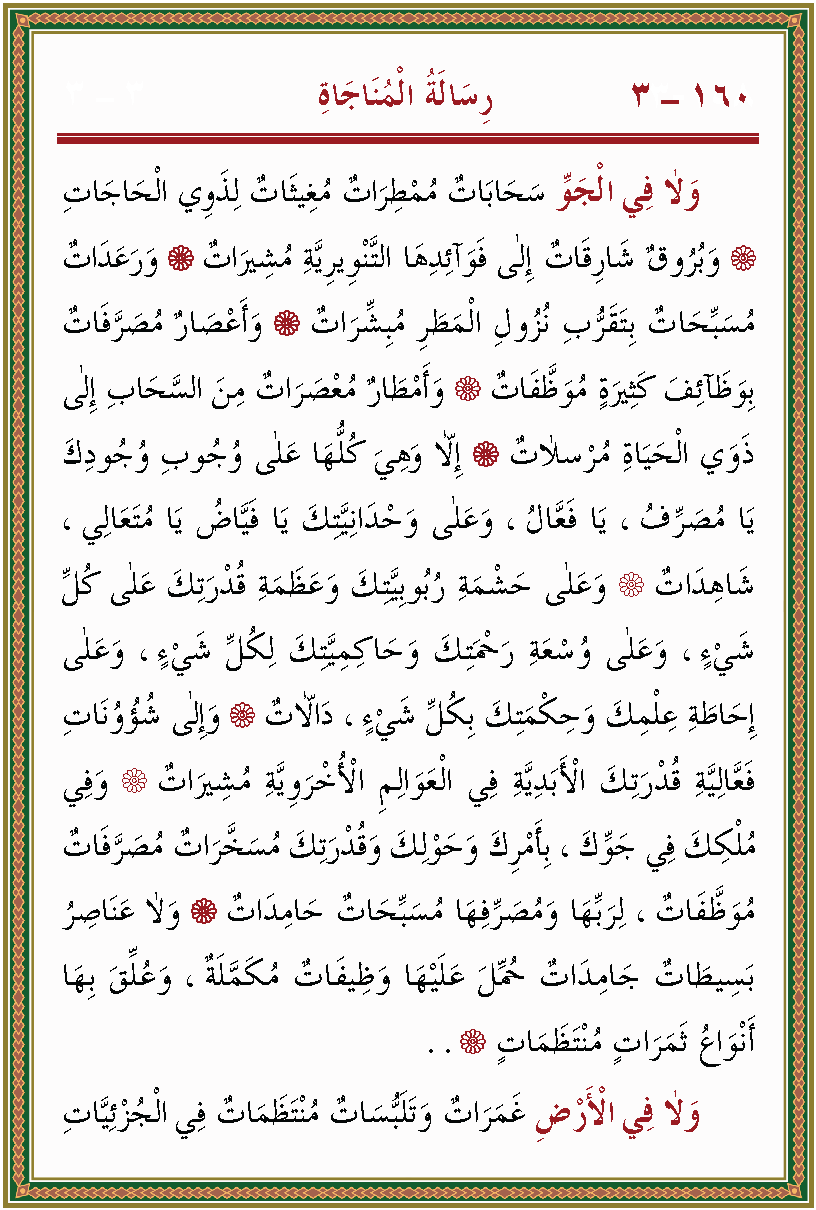 ١٦٠ – ٣ رِسَالَةُ الْمُنَاجَاةِ ٣ – ٣
وَلٰا فِي الْجَوِّ سَحَابَاتٌ مُمْطِرَاتٌ مُغِيثَاتٌ لِذَوِي الْحَاجَاتِ
۞ وَبُرُوقٌ شَارِقَاتٌ إِلٰى فَوَآئِدِهَا التَّنْوِيرِيَّةِ مُشِيرَاتٌ ۞ وَرَعَدَاتٌ
مُسَبِّحَاتٌ بِتَقَرُّبِ نُزُولِ الْمَطَرِ مُبِشِّرَاتٌ ۞ وَأَعْصَارٌ مُصَرَّفَاتٌ
بِوَظَآئِفَ كَثِيرَةٍ مُوَظَّفَاتٌ ۞ وَأَمْطَارٌ مُعْصَرَاتٌ مِنَ السَّحَابِ إِلٰى
ذَوِي الْحَيَاةِ مُرْسلٰاتٌ ۞ إِلّٰا وَهِيَ كُلُّهَا عَلٰى وُجُوبِ وُجُودِكَ
يَا مُصَرِّفُ ، يَا فَعَّالُ ، وَعَلٰى وَحْدَانِيَّتِكَ يَا فَيَّاضُ يَا مُتَعَالِي ،
شَاهِدَاتٌ ۞ وَعَلٰى حَشْمَةِ رُبُوبِيَّتِكَ وَعَظَمَةِ قُدْرَتِكَ عَلٰى كُلِّ
شَيْءٍ ، وَعَلٰى وُسْعَةِ رَحْمَتِكَ وَحَاكِمِيَّتِكَ لِكُلِّ شَيْءٍ ، وَعَلٰى
إِحَاطَةِ عِلْمِكَ وَحِكْمَتِكَ بِكُلِّ شَيْءٍ ، دَالّٰاتٌ ۞ وَإِلٰى شُؤُونَاتِ
فَعَّالِيَّةِ قُدْرَتِكَ الْأَبَدِيَّةِ فِي الْعَوَالِمِ الْأُخْرَوِيَّةِ مُشِيرَاتٌ ۞ وَفِي
مُلْكِكَ فِي جَوِّكَ ، بِأَمْرِكَ وَحَوْلِكَ وَقُدْرَتِكَ مُسَخَّرَاتٌ مُصَرَّفَاتٌ
مُوَظَّفَاتٌ ، لِرَبِّهَا وَمُصَرِّفِهَا مُسَبِّحَاتٌ حَامِدَاتٌ ۞ وَلٰا عَنَاصِرُ
بَسِيطَاتٌ جَامِدَاتٌ حُمِّلَ عَلَيْهَا وَظِيفَاتٌ مُكَمَّلَةٌ ، وَعُلِّقَ بِهَا
أَنْوَاعُ ثَمَرَاتٍ مُنْتَظَمَاتٍ ۞ . .
وَلٰا فِي الْأَرْضِ غَمَرَاتٌ وَتَلَبُّسَاتٌ مُنْتَظَمَاتٌ فِي الْجُزْئِيَّاتِ